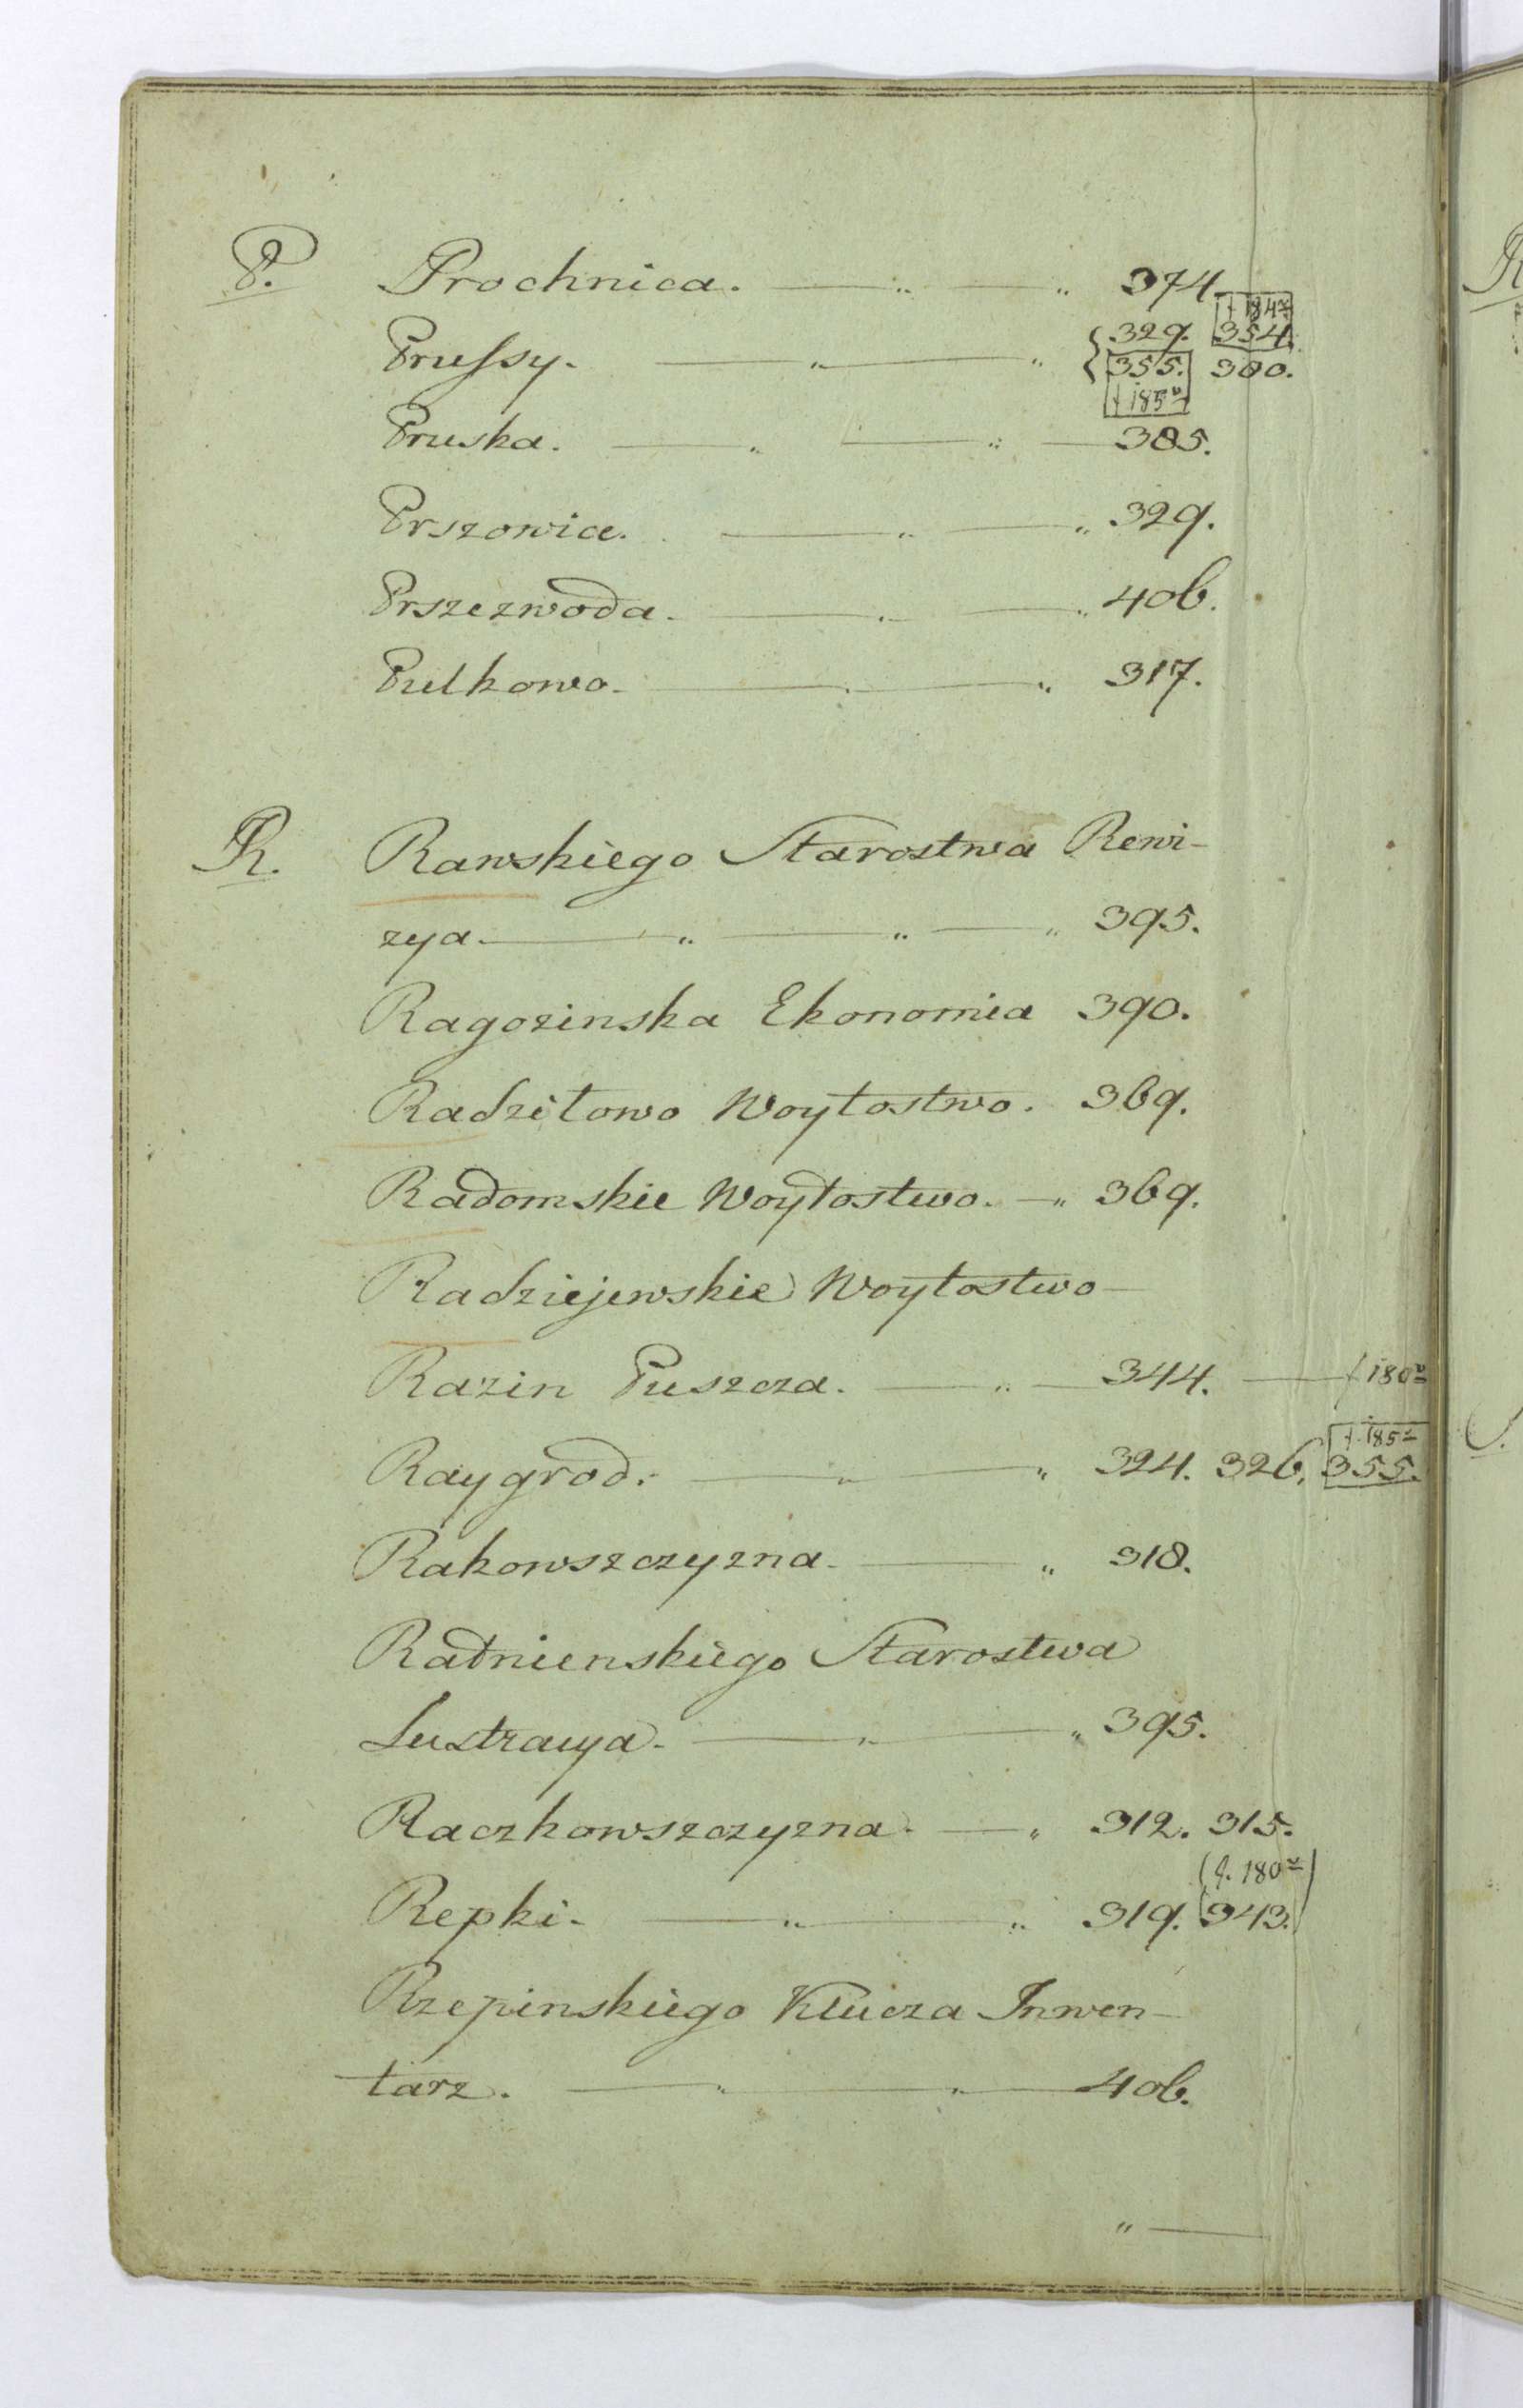 P. Prochnica. — " — " 374.
f 184v
Prussy. — " — " { 329. 354.
355. 380.
f 185v
Pruska. — " — " — 385.
Prszowice. — " — " 329.
Prszezwoda. — " — " 406.
Pulkowo. — " — " 317.
R. Rawskiego Starostwa Rewi-
zya. — " — " — " 395.
Ragozinska Ekonomia 390.
Radziłowo Woytostwo. 369.
Radomskie Woytostwo. — " 369.
Radziejewskie Woytostwo —
Razin Puszcza. — " — 344. — f 180v
f. 185v
Raygrod. — " — " 324. 326. 355.
Rakowszczyzna. — " 318.
Ratnienskiego Starostwa
Lustracya. — " — " 395.
Raczkowszczyzna. — " 312. 315.
(f. 180v)
Repki. — " — " 319. (343.)
Rzepinskiego Klucza Inwen-
tarz. — " — " — 406.
" —